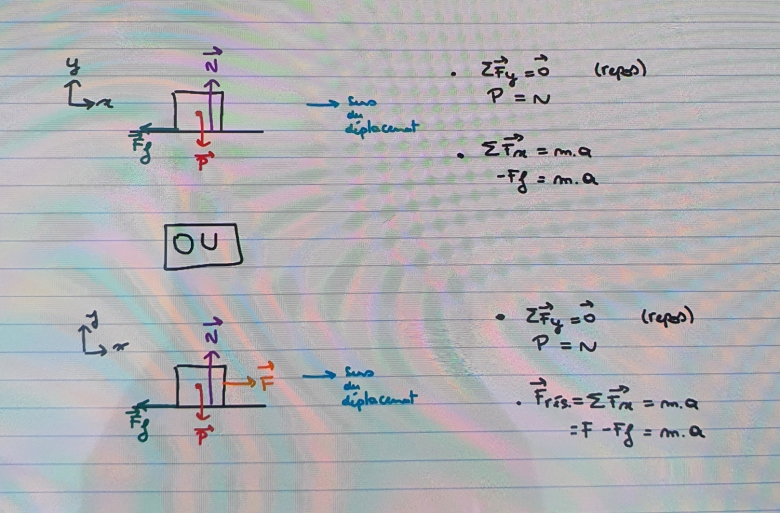 y
x
N
P
Ff
Sens
du
déplacement
• ΣFy = 0 (repos)
P = N
• ΣFx = m.a
-Ff = m.a
OU
y
x
N
F
P
Ff
Sens
du
déplacement
• ΣFy = 0 (repos)
P = N
• Frés. = ΣFx = m.a
= F - Ff = m.a